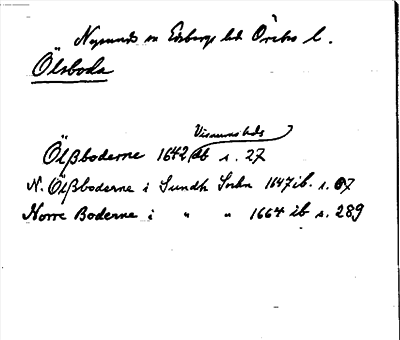 Nysunds sn Edsbergs hd Örebro l.
Ölsboda
Visnumsheds
Ölßboderne 1642 db s. 27
N. Ölßboderne i Sundh Sockn 1647 ib. s. 97
Norre Boderne i " " 1664 ib s. 289